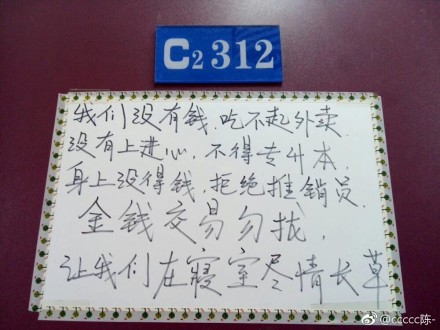 C2 312
我们没有钱.吃不起外卖.
没有上进心,不得专升本.
身上没得钱,拒绝推销员.
金钱交易勿扰.
让我们在寝室尽情长草
@ccccc陈-